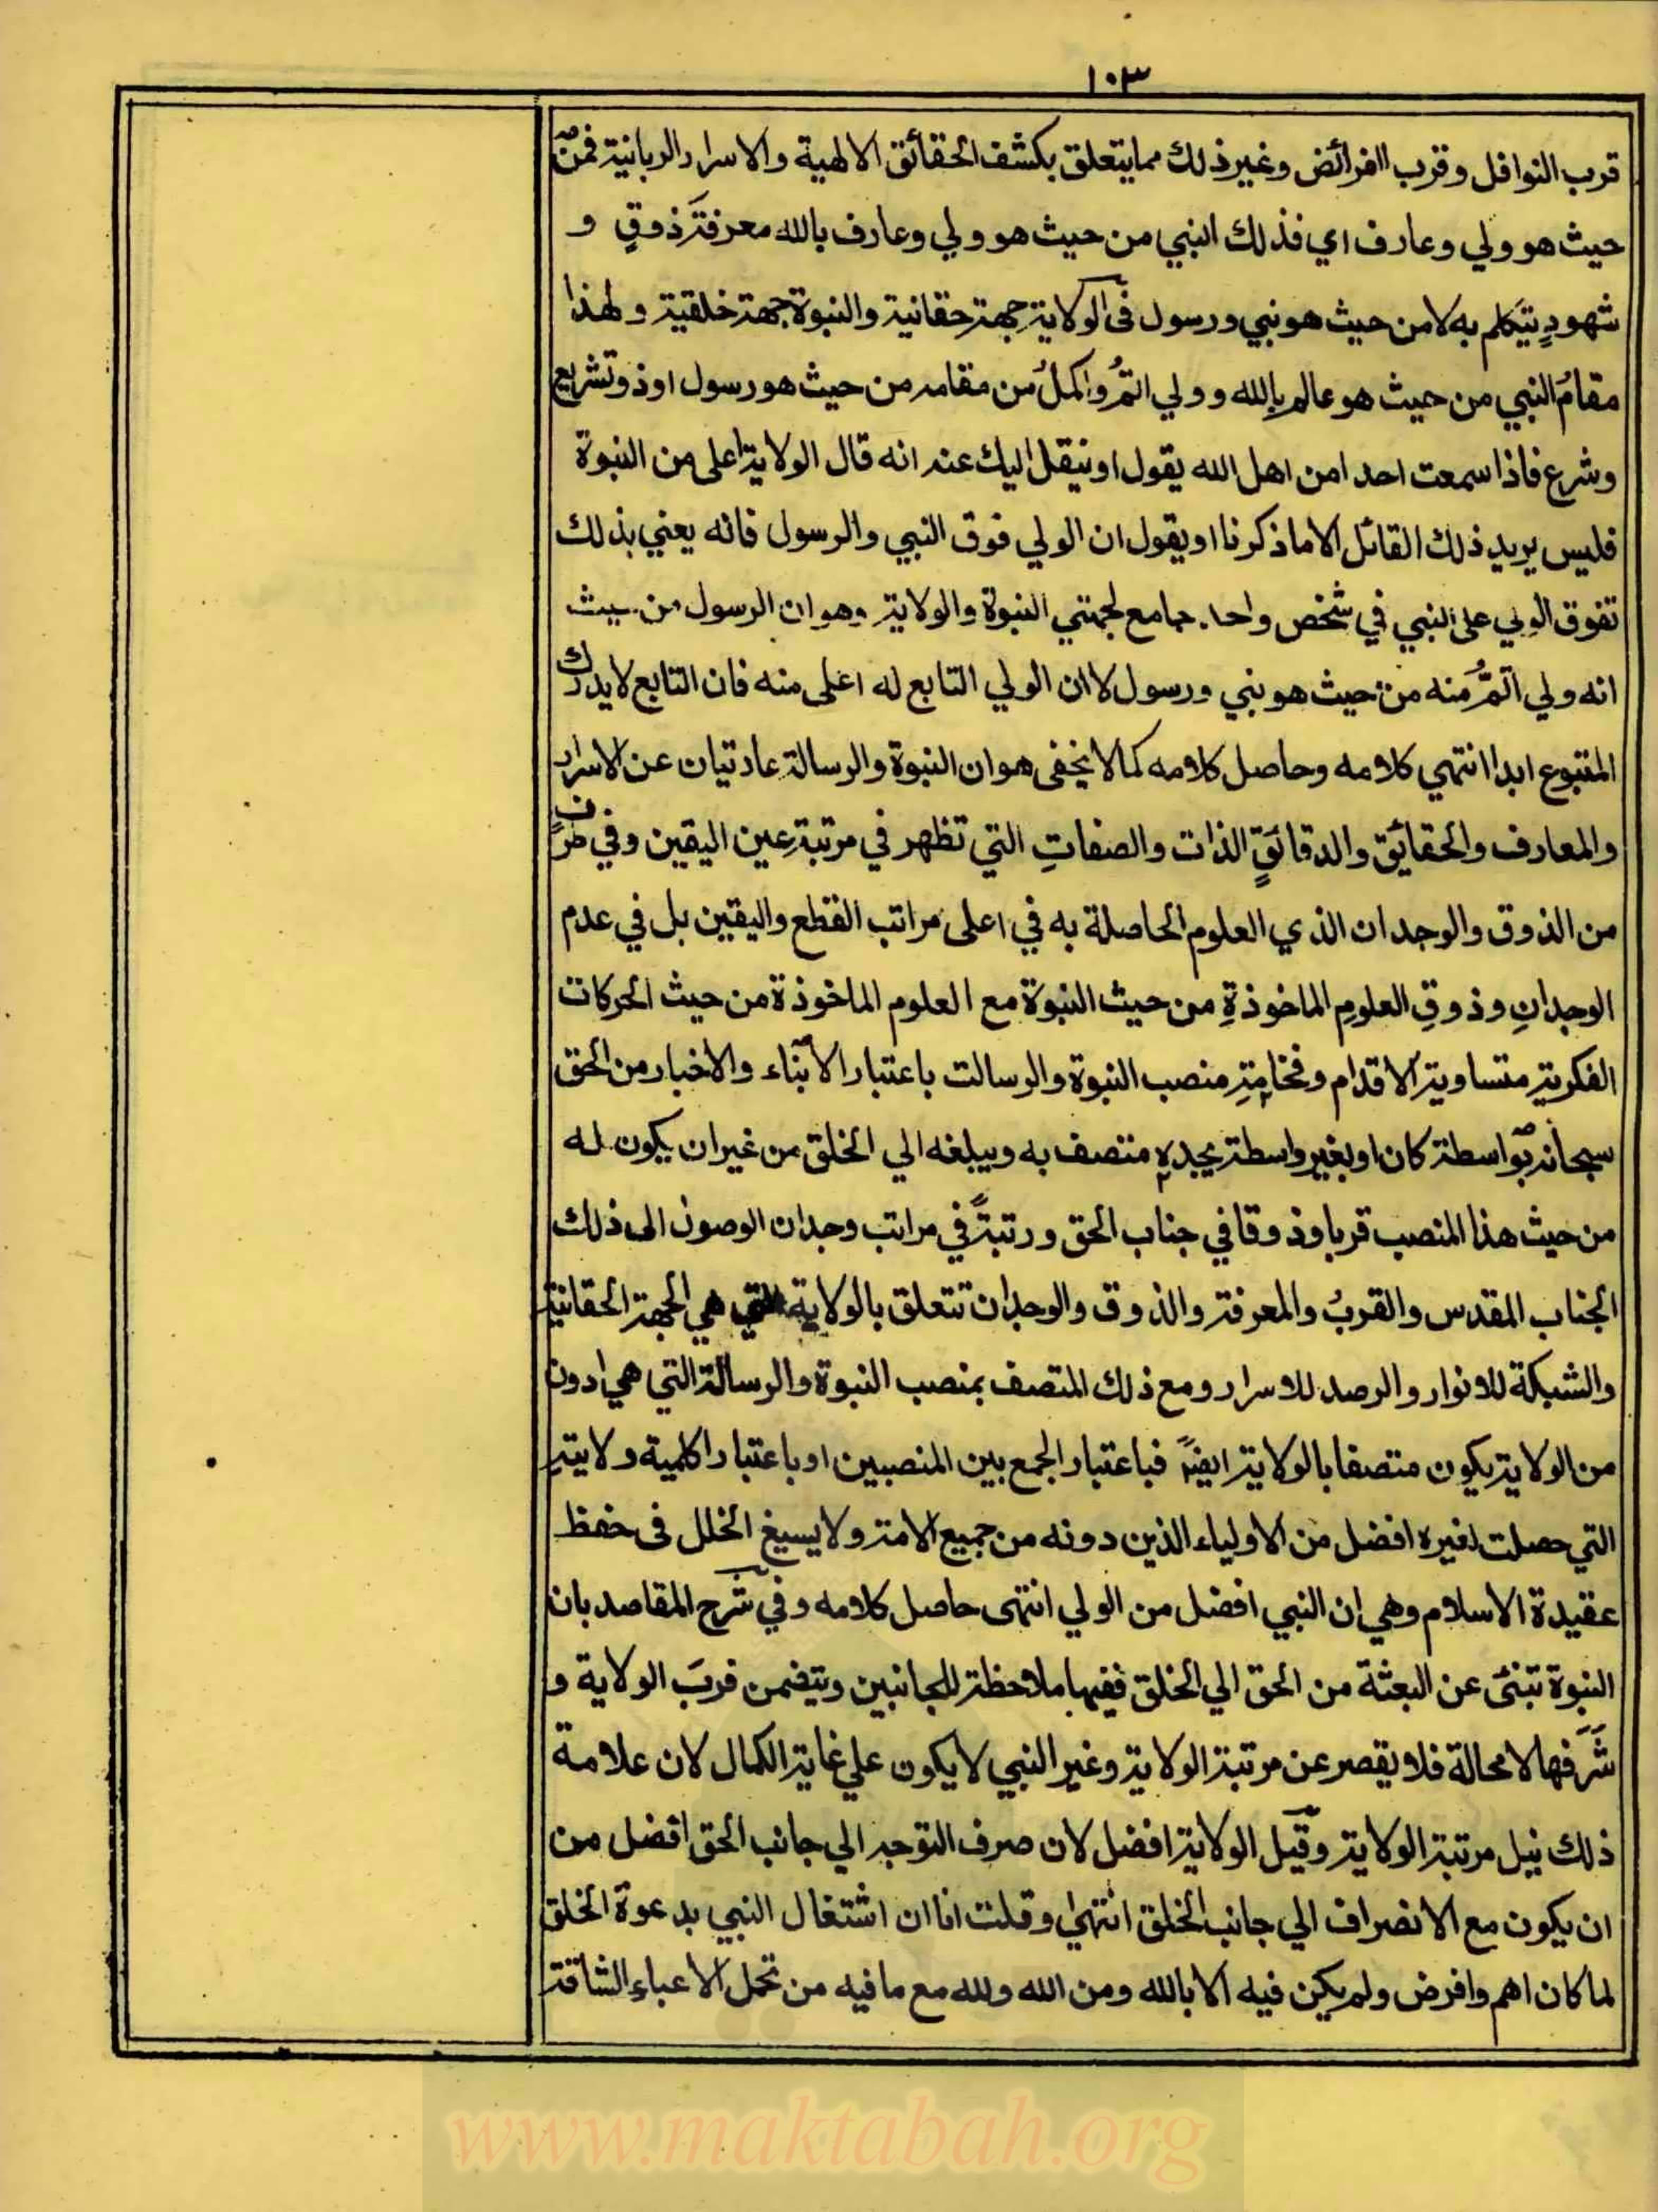 ١٠٣
قرب النوافل وقرب الفرائض وغير ذلك مما يتعلق بكشف الحقائق الالهية والاسرار الربانية فمن
حيث هو ولي وعارف اي فذلك النبي من حيث هو ولي وعارف بالله معرفة ذوقٍ و
شهودٍ يتكلم به لا من حيث هو نبي ورسول في الولاية جهة حقانية والنبوة جهة خلقية ولهذا
مقامُ النبي من حيث هو عالم بالله وولي اتمُّ واكملُ من مقامه من حيث هو رسول او ذو تشريع
وشرع فاذا سمعت احدا من اهل الله يقول او ينقل اليك عنه انه قال الولاية اعلى من النبوة
فليس يريد ذلك القائل الا ما ذكرنا او يقول ان الولي فوق النبي والرسول فانه يعني بذلك
تفوق الولي على النبي في شخص واحد جامع لجهتي النبوة والولاية وهو ان الرسول من حيث
انه ولي اتمُّ منه من حيث هو نبي ورسول لا ان الولي التابع له اعلى منه فان التابع لا يدرك
المتبوع ابدا انتهي كلامه وحاصل كلامه كما لا يخفى هو ان النبوة والرسالة عاريتان عن الاسرار
والمعارف والحقائق والدقائق الذات والصفاتِ التي تظهر في مرتبة عين اليقين وفي طرفٍ
من الذوق والوجدان الذي العلوم الحاصلة به في اعلى مراتب القطع واليقين بل في عدم
الوجدانِ وذوقِ العلومِ الماخوذةِ من حيث النبوة مع العلوم الماخوذة من حيث الحركات
الفكرية متساوية الاقدام وفخامةِ منصب النبوة والرسالت باعتبار الانباء والاخبار من الحق
سبحانه بواسطة كان او بغير واسطة يجده متصف به ويبلغه الي الخلق من غير ان يكون له
من حيث هذا المنصب قربا وذوقا في جناب الحق ورتبةً في مراتب وجدان الوصول الى ذلك
الجناب المقدس والقربُ والمعرفة والذوق والوجدان تتعلق بالولاية التي هي الجهة الحقانية
والشبكة للانوار والرصد للاسرار ومع ذلك المتصف بمنصب النبوة والرسالة التي هي ادون
من الولاية يكون متصفا بالولاية ايضاً فباعتبار الجمع بين المنصبين او باعتبار اكلمية ولايته
التي حصلت لغيره افضل من الاولياء الذين دونه من جميع الامة ولا يسيغ الخلل في حفظ
عقيدة الاسلام وهي ان النبي افضل من الولي انتهى حاصل كلامه وفي شرح المقاصد بان
النبوة تنبئ عن البعثة من الحق الي الخلق ففيها ملاحظة للجانبين ويتضمن قربَ الولاية و
شَرَفها لا محالة فلا يقصر عن مرتبة الولاية وغير النبي لا يكون علي غاية الكمال لان علامة
ذلك نيل مرتبة الولاية وقيل الولاية افضل لان صرف التوجه الي جانب الحق افضل من
ان يكون مع الانصراف الي جانب الخلق انتهي وقلت انا ان اشتغال النبي بدعوة الخلق
لما كان اهم وافرض ولم يكن فيه الا بالله ومن الله ولله مع ما فيه من تحمل الاعباءِ الشاقة
www.maktabah.org